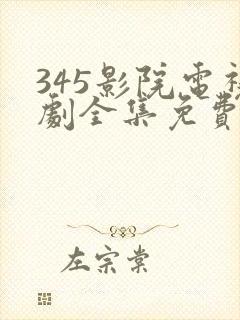 345影院電視
劇全集免費
左宗棠